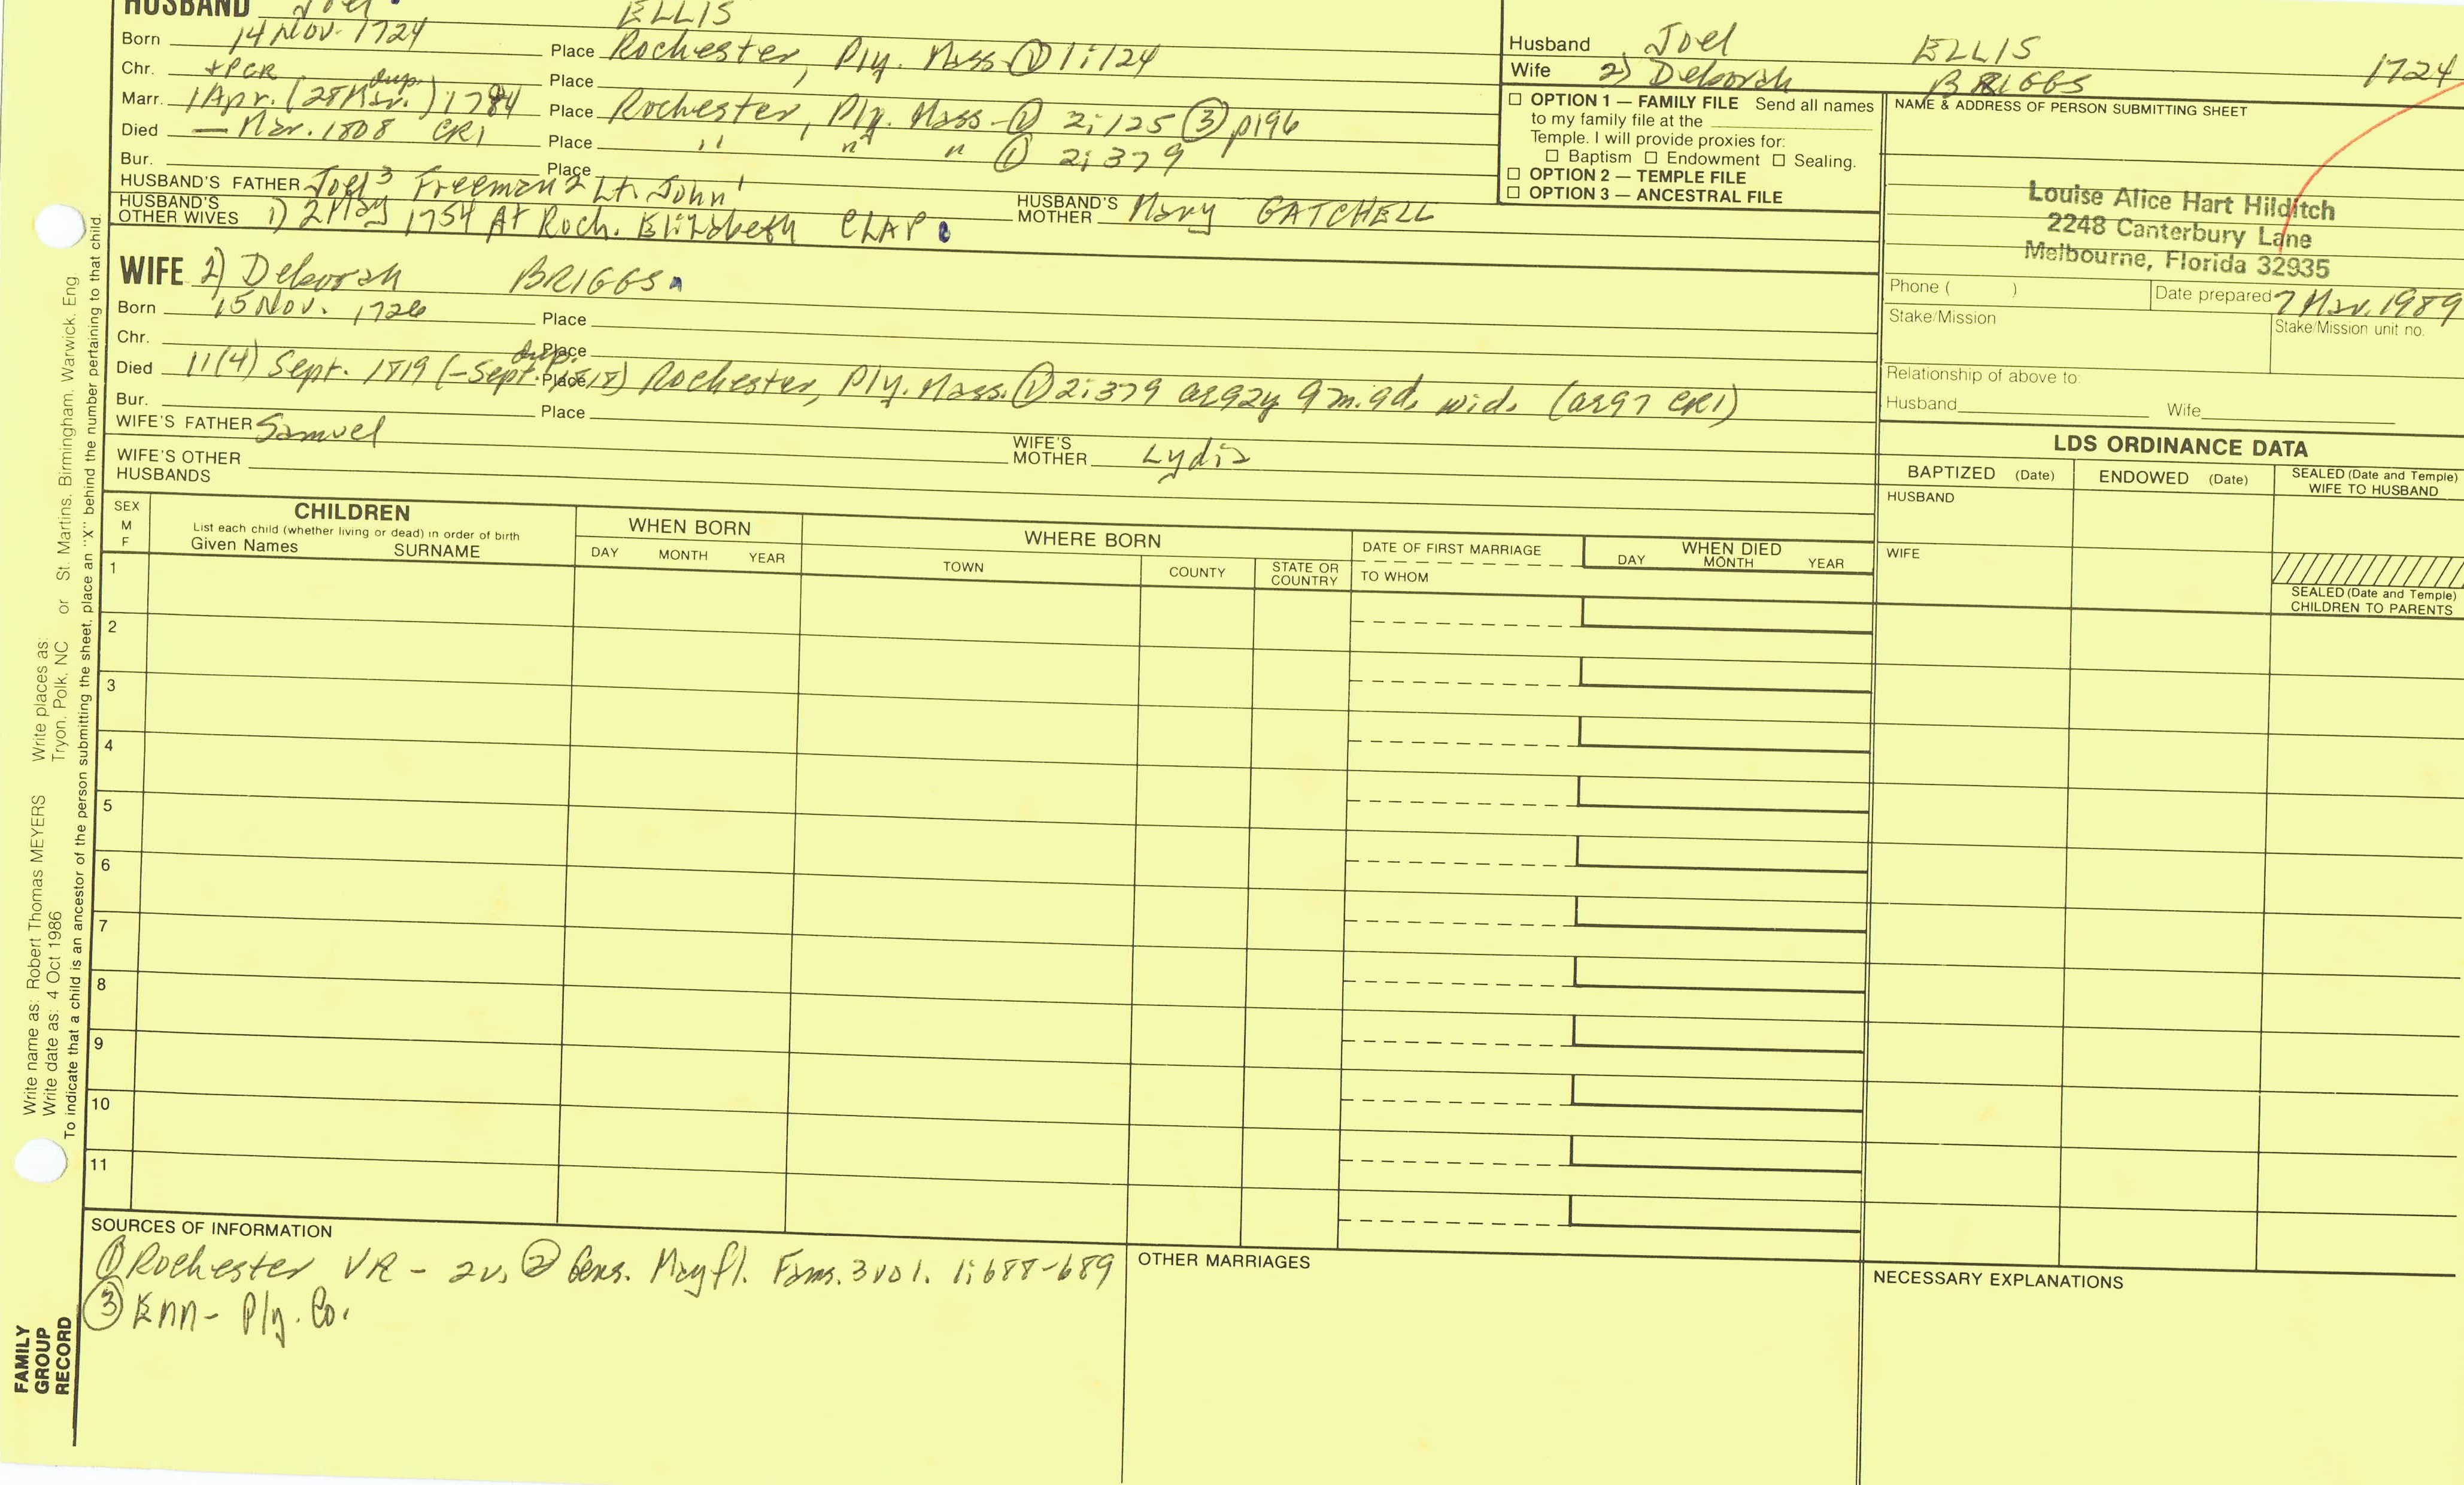 HUSBAND Joel ELLIS
Born 14 Nov. 1724 Place Rochester, Ply. Mass ① 1:124
Chr. +PCR Place
Marr. 1 Apr. (28 Mar. dup.) 1784 Place Rochester, Ply. Mass - ① 2:125 ③ p196
Died — Mar. 1808 CR1 Place " " " ① 2:379
Bur. Place
HUSBAND'S FATHER Joel³ Freeman² Lt. John¹ HUSBAND'S MOTHER Mary GATCHELL
HUSBAND'S OTHER WIVES 1) 2 May 1754 At Roch. Elizabeth CLAP
WIFE 2) Deborah BRIGGS
Born 15 Nov. 1726 Place
Chr. Place
Died 11(4) Sept. 1819 (- Sept. dup. 1818) Place Rochester, Ply. Mass. ① 2:379 ae 92y 9m. 9d. wid. (ae 97 CR1)
Bur. Place
WIFE'S FATHER Samuel WIFE'S MOTHER Lydia
WIFE'S OTHER HUSBANDS
Husband Joel ELLIS 1724
Wife 2) Deborah BRIGGS
☐ OPTION 1 — FAMILY FILE Send all names
to my family file at the
Temple. I will provide proxies for:
☐ Baptism ☐ Endowment ☐ Sealing.
☐ OPTION 2 — TEMPLE FILE
☐ OPTION 3 — ANCESTRAL FILE
NAME & ADDRESS OF PERSON SUBMITTING SHEET
Louise Alice Hart Hilditch
2248 Canterbury Lane
Melbourne, Florida 32935
Phone ( ) Date prepared 7 Mar. 1989
Stake/Mission Stake/Mission unit no.
Relationship of above to:
Husband Wife
LDS ORDINANCE DATA
BAPTIZED (Date) ENDOWED (Date) SEALED (Date and Temple) WIFE TO HUSBAND
HUSBAND
WIFE
SEALED (Date and Temple) CHILDREN TO PARENTS
SEX M F
CHILDREN
List each child (whether living or dead) in order of birth
Given Names SURNAME
WHEN BORN
DAY MONTH YEAR
WHERE BORN
TOWN COUNTY STATE OR COUNTRY
DATE OF FIRST MARRIAGE
TO WHOM
WHEN DIED
DAY MONTH YEAR
1
2
3
4
5
6
7
8
9
10
11
SOURCES OF INFORMATION
① Rochester VR - 2v. ② Gens. Mayfl. Fams. 3 vol. 1:688-689
③ Enn - Ply. Co.
OTHER MARRIAGES
NECESSARY EXPLANATIONS
Write name as: Robert Thomas MEYERS Write places as:
Write date as: 4 Oct 1986 Tryon, Polk, NC or St. Martins, Birmingham, Warwick, Eng
To indicate that a child is an ancestor of the person submitting the sheet, place an "X" behind the number pertaining to that child.
FAMILY
GROUP
RECORD